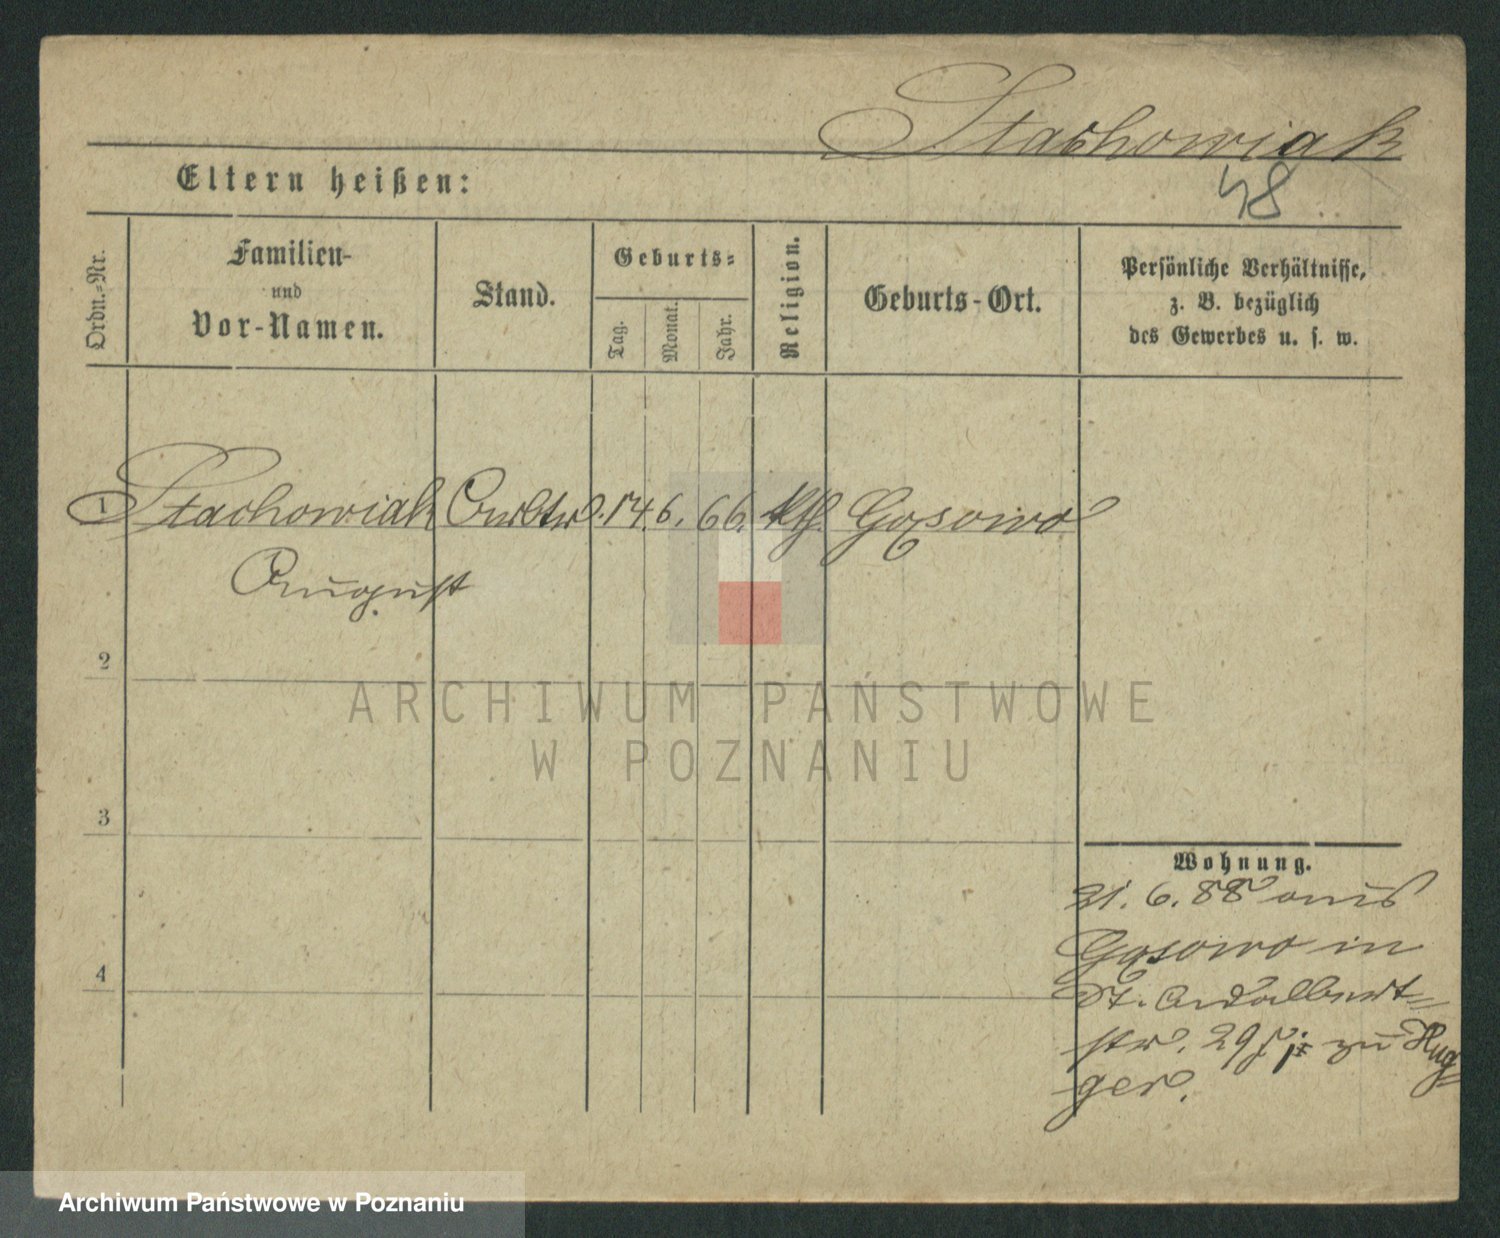 Stachowiak
48
Eltern heißen:
Ordn.-Nr.
Familien-
und
Vor-Namen.
Stand.
Geburts-
Tag.
Monat.
Jahr.
Religion.
Geburts-Ort.
Persönliche Verhältnisse,
z. B. bezüglich
des Gewerbes u. s. w.
1 Stachowiak Arbtr. 14. 6. 66. kth. Gąsowo
August
2
ARCHIWUM PAŃSTWOWE
W POZNANIU
3
Wohnung.
21. 6. 88 aus
Gąsowo in
St. Adalbert-
str. 29 zu Hug-
ger.
4
Archiwum Państwowe w Poznaniu